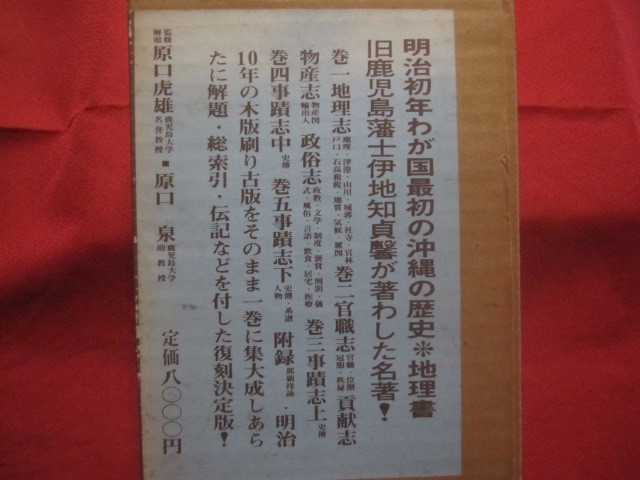 明治初年わが国最初の沖縄の歴史※地理書
旧鹿児島藩士伊地知貞馨が著わした名著!
巻一地理志 地理・津港・山川・城郭・社寺・官林 戸口・石高租税・地質・気候・属図 巻二官職志 官職・位階 冠服・秩禄 貢献志
物産志 物産図 輸出入 政俗志 政教・文学・制度・褒賞・刑罰・儀式・風俗・言語・飲食・居宅・医療 巻三事蹟志上 史傳
巻四事蹟志中 史傳 巻五事蹟志下 史傳・系譜 人物 附録 ・明治
10年の木版刷り古版をそのまま一巻に集大成しあら
たに解題・総索引・伝記などを付した復刻決定版!
監修 解題 原口虎雄 鹿児島大学 名誉教授 ■ 原口 泉 鹿児島大学 助教授
定価八〇〇〇円